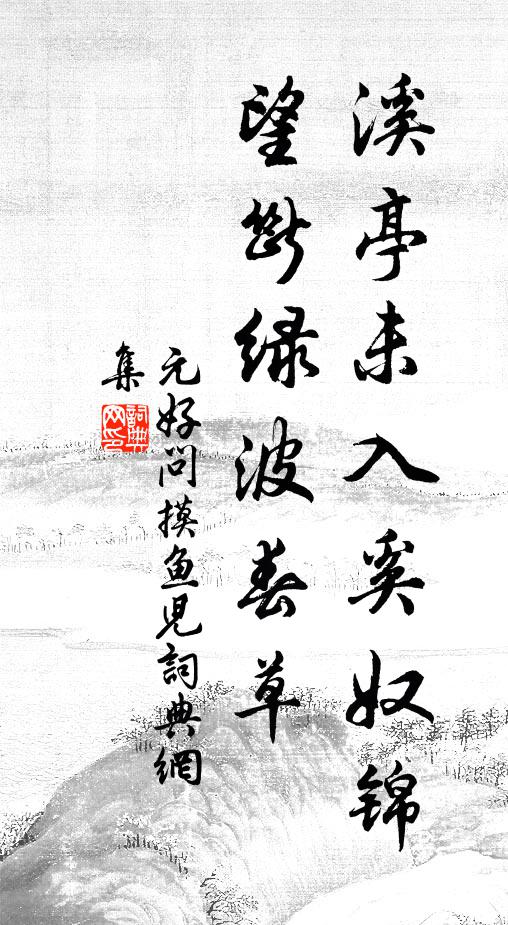 溪亭未入奚奴锦
望断绿波春草
元好问摸鱼儿詞典網
集
詞典网印